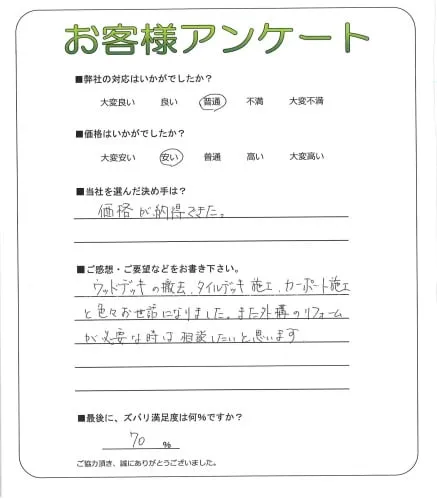 お客様アンケート
■弊社の対応はいかがでしたか？
大変良い 良い 普通 不満 大変不満
■価格はいかがでしたか？
大変安い 安い 普通 高い 大変高い
■当社を選んだ決め手は？
価格が納得できた。
■ご感想・ご要望などをお書き下さい。
ウッドデッキの撤去、タイルデッキ施工、カーポート施工
と色々お世話になりました。また外構のリフォーム
が必要な時は相談したいと思います
■最後に、ズバリ満足度は何%ですか？
70 %
ご協力頂き、誠にありがとうございました。